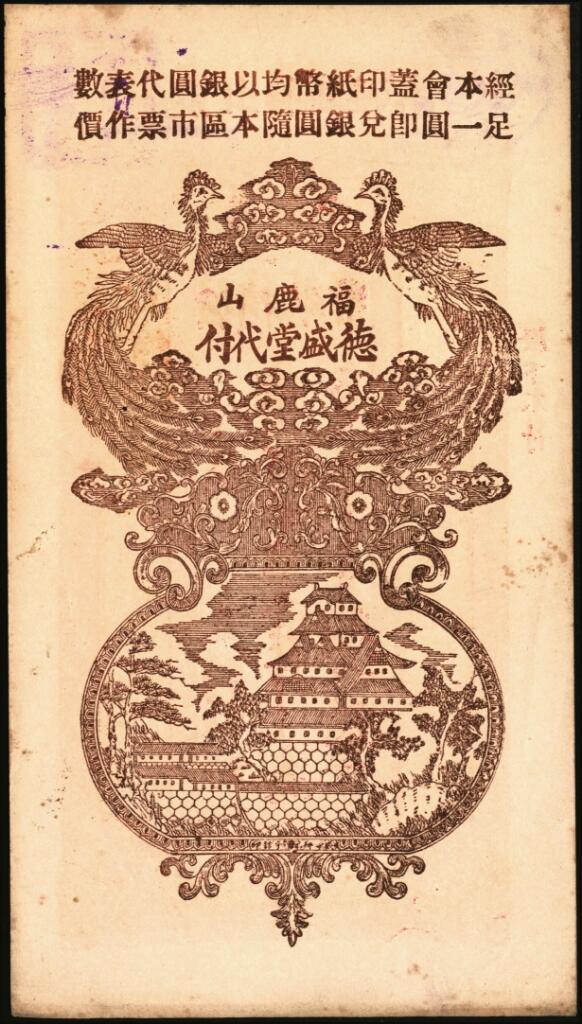 經本會蓋印紙幣均以銀圓代表數
足一圓卽兌銀圓隨本區市票作價
福鹿山
徳盛堂代付